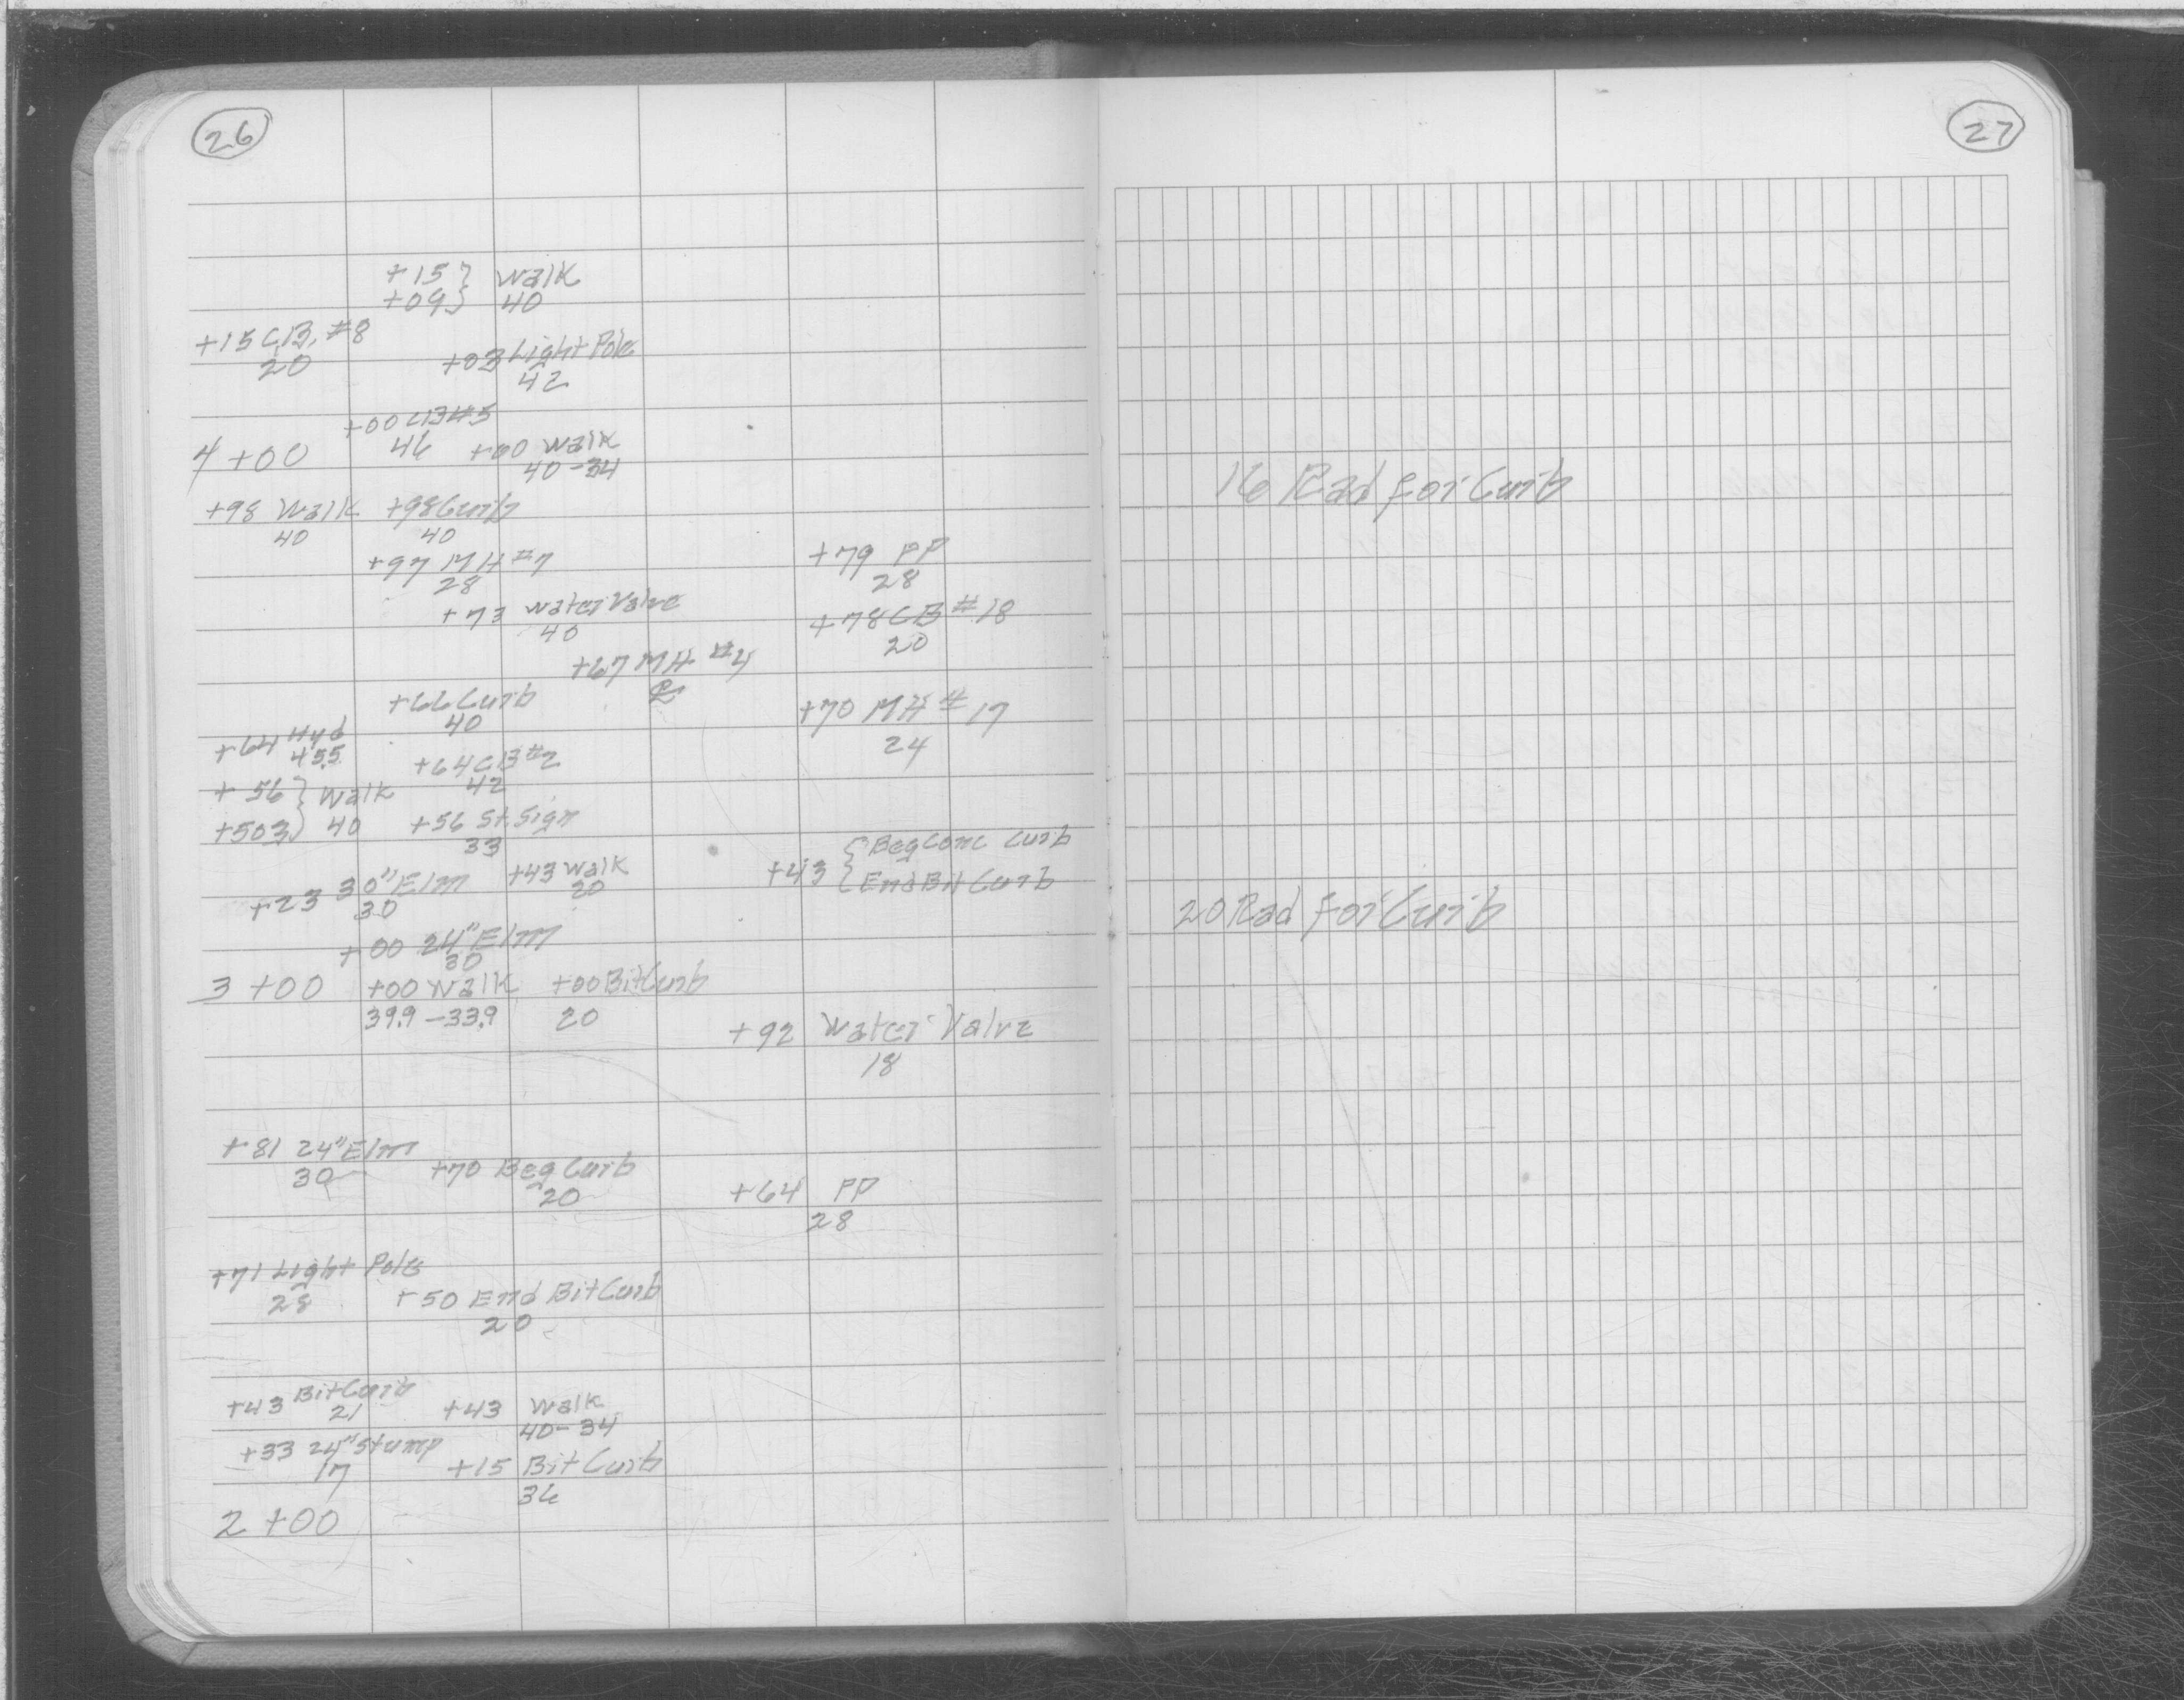 26
27
+15 } Walk
+09 } 40
+15 C.B. #8
20
+03 Light Pole
42
+00 CB#5
46
4+00
+00 Walk
40-34
16 Rad for Curb
+98 Walk +98 Curb
40 40
+97 MH #7
28
+79 PP
28
+73 Water Valve
40
+78 CB #18
20
+67 MH #4
℄
+66 Curb
40
+70 MH #17
24
+64 Hyd
45.5
+64 CB #2
42
+56 } Walk
+503 } 40
+56 St. Sign
33
+43 { Beg Conc Curb
End Bit Curb
+23 30" Elm
30
+43 Walk
20
20 Rad for Curb
+00 24" Elm
30
3+00 +00 Walk +00 Bit Curb
39.9-33.9 20
+92 Water Valve
18
+81 24" Elm
30
+70 Beg Curb
20
+64 PP
28
+71 Light Pole
28
+50 End Bit Curb
20
+43 Bit Curb
21
+43 Walk
40-34
+33 24" Stump
17
+15 Bit Curb
36
2+00